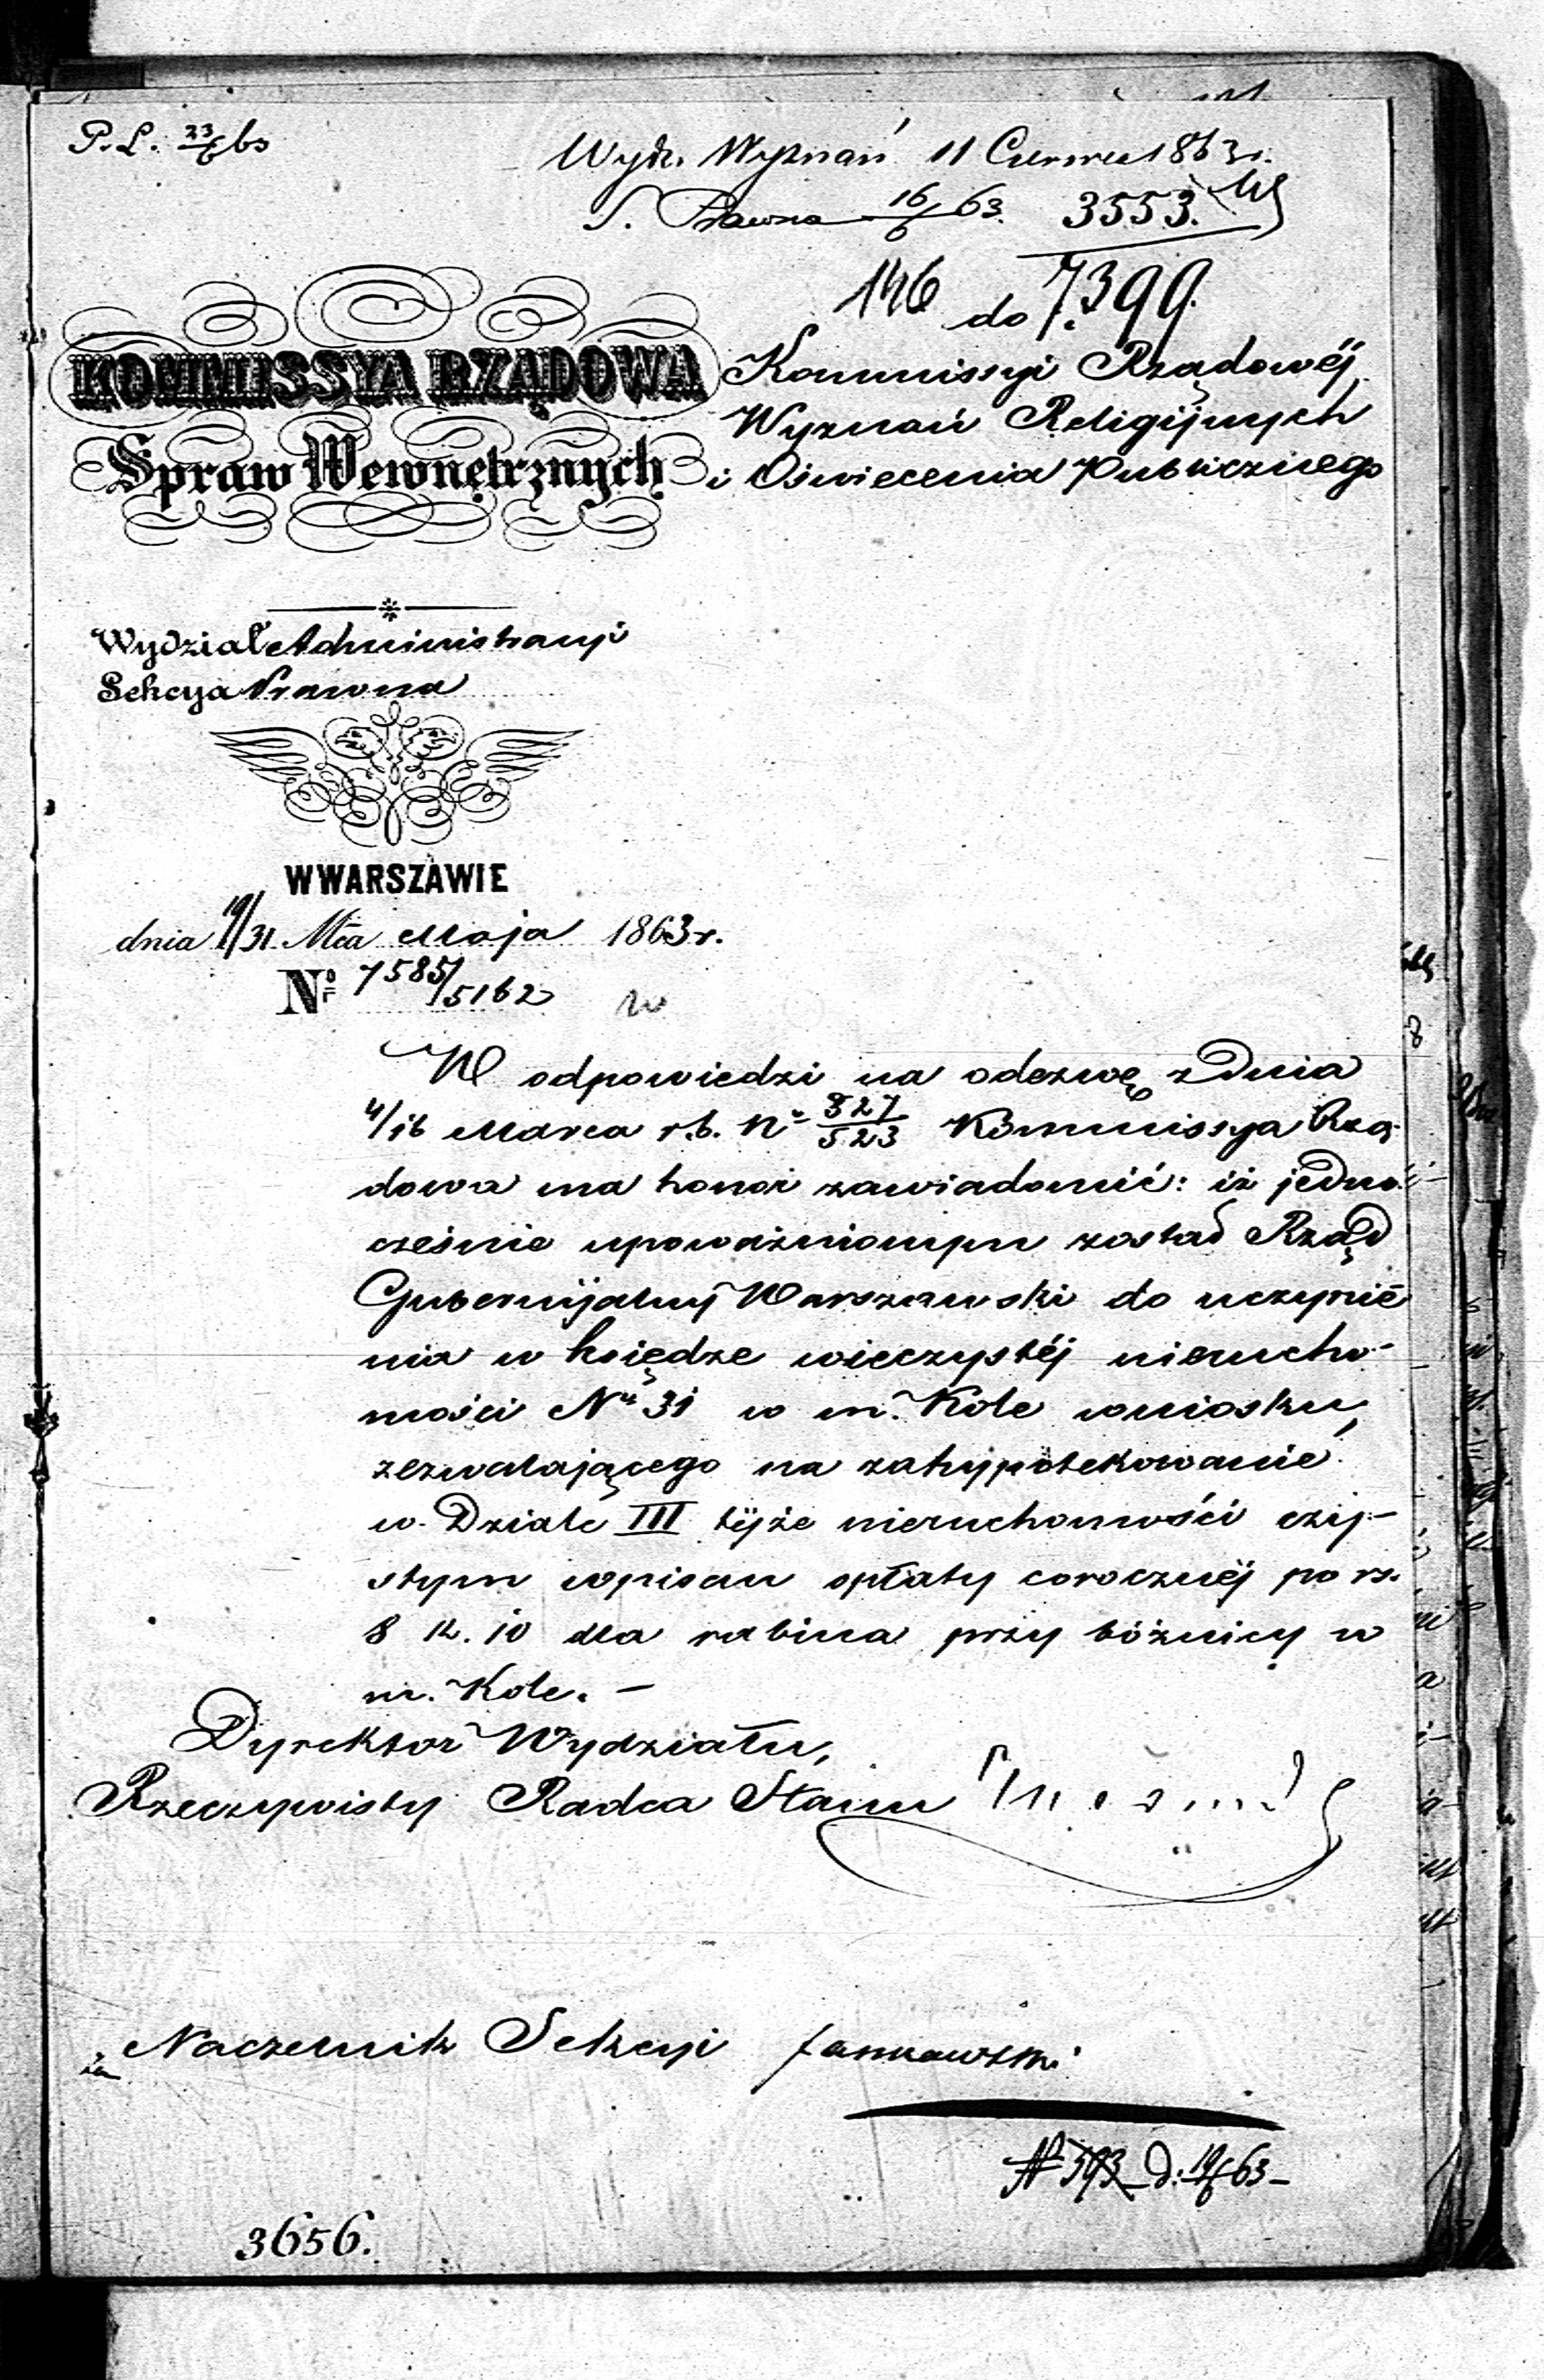 P. L. 23/6 63
Wydz. Wyznań 11 Czerwca 1863 r.
S. Prawna 16/6 63. 3553.
146 do 7399.
KOMMISSYA RZĄDOWA
Spraw Wewnętrznych
Kommissyi Rządowéj
Wyznań Religijnych
i Oświecenia Publicznego
Wydział Administracyi
Sekcya Prawna
W WARSZAWIE
dnia 19/31 Mca Maja 1863 r.
Nr 7585/5162
W odpowiedzi na odezwę z Dnia
4/16 Marca r.b. No 827/523 Kommissya Rzą-
dowa ma honor zawiadomić: iż jedno-
cześnie upoważnionym został Rząd
Gubernijalny Warszawski do uczynie-
nia w księdze wieczystéj nierucho-
mości No 31 w m. Kole wniosku,
zezwalającego na zahypotekowanie
w Dziale III téjże nieruchomości czy-
stym wpisem opłaty corocznéj po rs.
8 k. 10 dla rabina przy bóżnicy w
m. Kole. —
Dyrektor Wydziału,
Rzeczywisty Radca Stanu
za Naczelnik Sekcyi Jannawski
No 393 d: 19/6 63 —
3656.